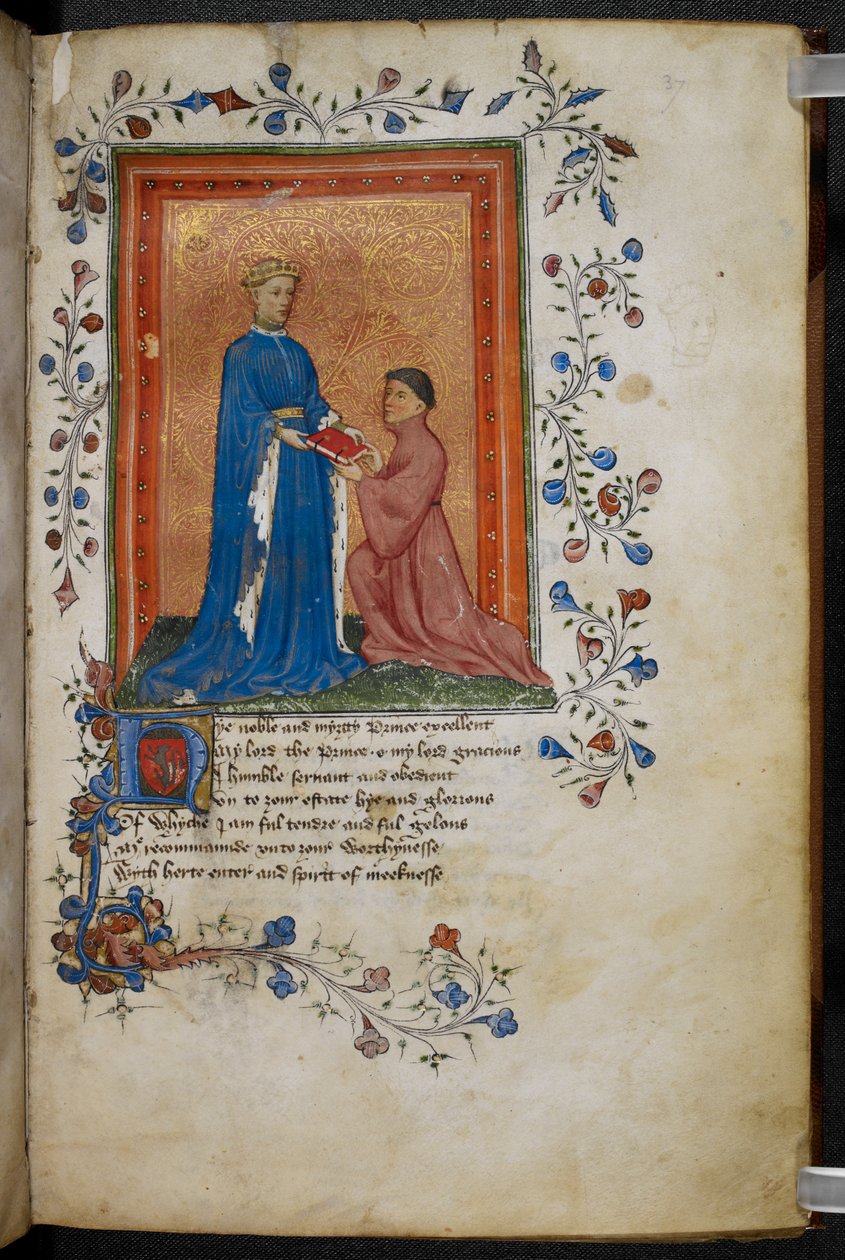 37
Hye noble and myʒtty Prince excellent
My lord the Prince · o my lord gracious
I humble seruant and obedient
Vn to ʒour estate hye and glorious
Of whyche I am ful tendre and ful gelous
Me recommaunde vnto ʒour worthynesse
Wyth herte enter and spirit of meeknesse